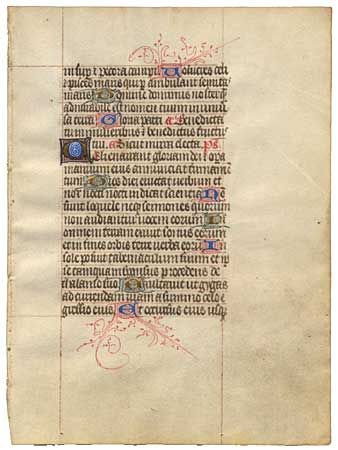 insup et pecora campi Uolucres celi
et pisces maris qui perambulant semitas
maris Domine dominus noster qm
admirabile est nomen tuum in uniuer
sa terra Gloria patri a Benedicta
tu in mulieribus et benedictus fructus
tui a Sicut mirra electa ps
Celi enarrant gloriam dei et opera
manuum eius annunciat firmamen
tum Dies diei eructat uerbum et
nox nocti indicat scientiam Non
sunt loquele neqz sermones quorum
non audiantur uoces eorum In
omnem terram exiuit sonus eorum
et in fines orbis terre uerba eorum In
sole posuit tabernaculum suum et
ipse tanquam sponsus procedens de
thalamo suo Exultauit ut gygas
ad currendam uiam a summo celo e
gressio eius Et occursus eius usqz